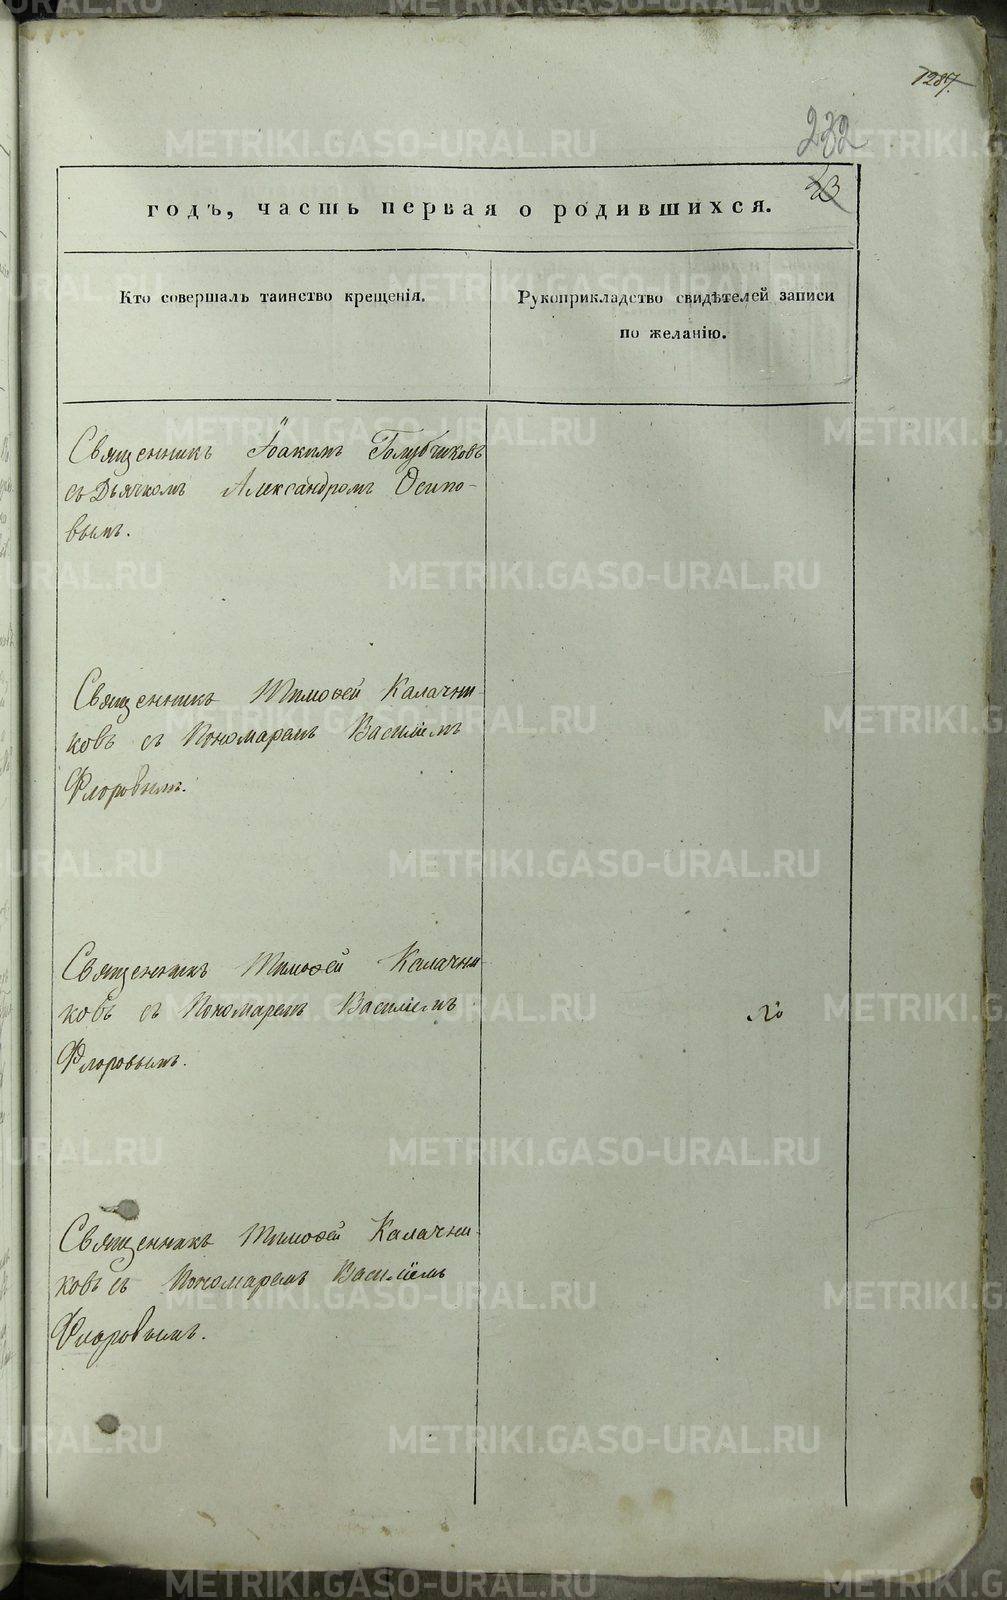 1287.
232
23
годъ, часть первая о родившихся.
Кто совершалъ таинство крещенія.
Рукоприкладство свидѣтелей записи
по желанію.
Священникъ Іоакимъ Голубчиковъ
съ Дьячкомъ Александромъ Осипо-
вымъ.
Священникъ Тимоѳей Калачни-
ковъ съ Пономаремъ Василіемъ
Флоровымъ.
Священникъ Тимоѳей Калачни-
ковъ съ Пономаремъ Василіемъ
Флоровымъ.
Священникъ Тимоѳей Калачни-
ковъ съ Пономаремъ Василіемъ
Флоровымъ.
METRIKI.GASO-URAL.RU